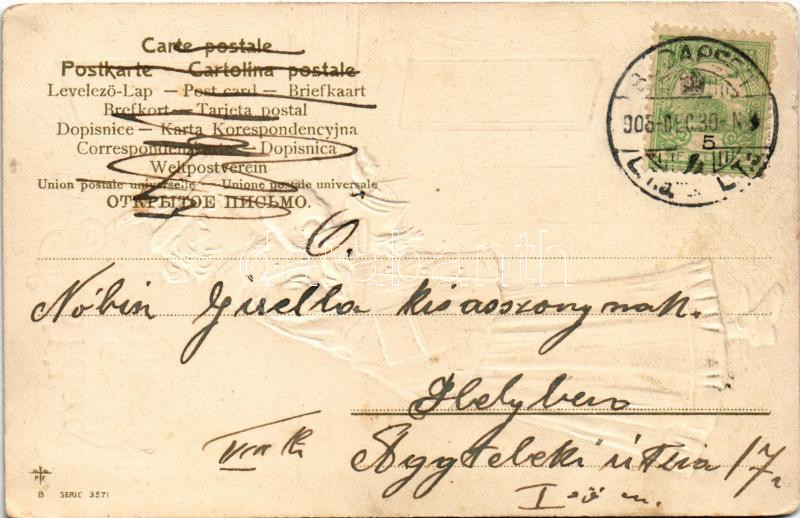 Carte postale
Postkarte – Cartolina postale
Levelező-Lap – Post card – Briefkaart
Brefkort – Tarjeta postal
Dopisnice – Karta Korespondencyjna
Correspondenzkarte – Dopisnica
Weltpostverein
Union postale universelle – Unione postale universale
ОТКРЫТОЕ ПИСЬМО.
BUDAPEST
908 DEC. 30 N
5
darabanth
Gisella kisasszonynak.
Helyben
Aggteleki utca 17.
I
B SERIE 3571